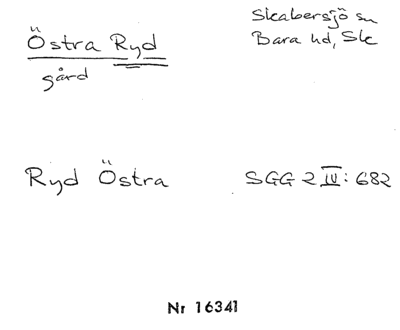 Östra Ryd
gård
Skabersjö sn
Bara hd, Sk
Ryd Östra
SGG 2 IV: 682
Nr 16341